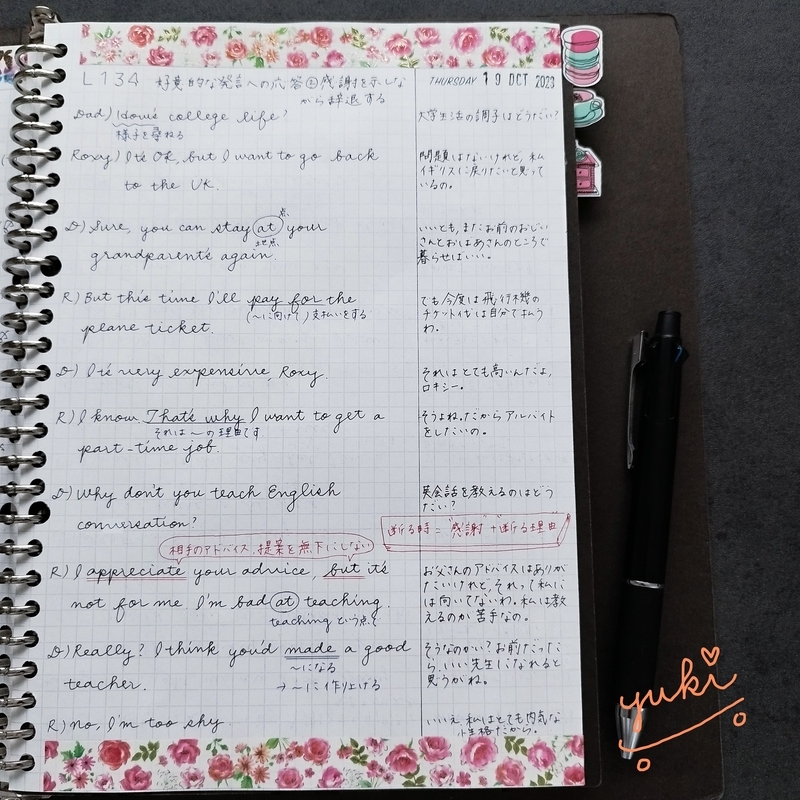 L134 好意的な発言への応答②感謝を示しな
がら辞退する
THURSDAY 19 OCT 2023
Dad) How's college life?
様子を尋ねる
大学生活の調子はどうだい?
Roxy) It's OK, but I want to go back
to the UK.
問題はないけれど、私
イギリスに戻りたいと思って
いるの。
D) Sure, you can stay at your
点
地点
grandparent's again.
いいとも、またお前のおじい
さんとおばあさんのところで
暮らせばいい。
R) But this time I'll pay for the
(〜に向けて)支払いをする
plane ticket.
でも今度は飛行機の
チケット代は自分で払う
わ。
D) It's very expensive, Roxy.
それはとても高いんだよ、
ロキシー。
R) I know. That's why I want to get a
それは〜の理由です
part-time job.
そうよね。だからアルバイト
をしたいの。
D) Why don't you teach English
conversation?
英会話を教えるのはどう
だい?
断る時="感謝"+断る理由
相手のアドバイス、提案を無下にしない
R) I appreciate your advice, but it's
not for me I'm bad at teaching.
teachingという点で
お父さんのアドバイスはありが
たいけれど、それって私に
は向いてないわ。私は教え
るのが苦手なの。
D) Really? I think you'd made a good
〜になる
teacher.
→〜に作り上げる
そうなのかい?お前だった
ら、いい先生になれると
思うがね。
R) No, I'm too shy.
いいえ、私はとても内気な
性格だから。
yuki